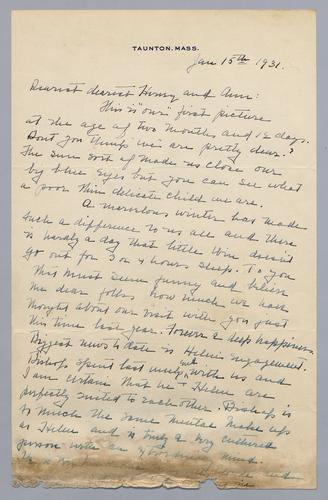 TAUNTON, MASS.
Jan 15th 1931.
Dearest dearest Henry and Ann:
This is "our" first picture
at the age of two months and 12 days.
Dont you think we are pretty dear?
The sun sort of made us close our
big blue eyes but you can see what
a poor thin delicate child we are.
A marvelous winter has made
such a difference to us all and there
is hardly a day that little Win doesn't
go out for 3 or 4 hours sleep. To you
this must seem funny and believe
me dear folks how much we have
thought about our visit with you just
this time last year. Forever a deep happiness.
Biggest news to date is Helen's engagement.
Bishop spent last week with us and
I am certain that he & Helen are
perfectly suited to each other. Bishop is
so much the same mental make up
as Helen and is truly a very cultured
person with an mind.
and